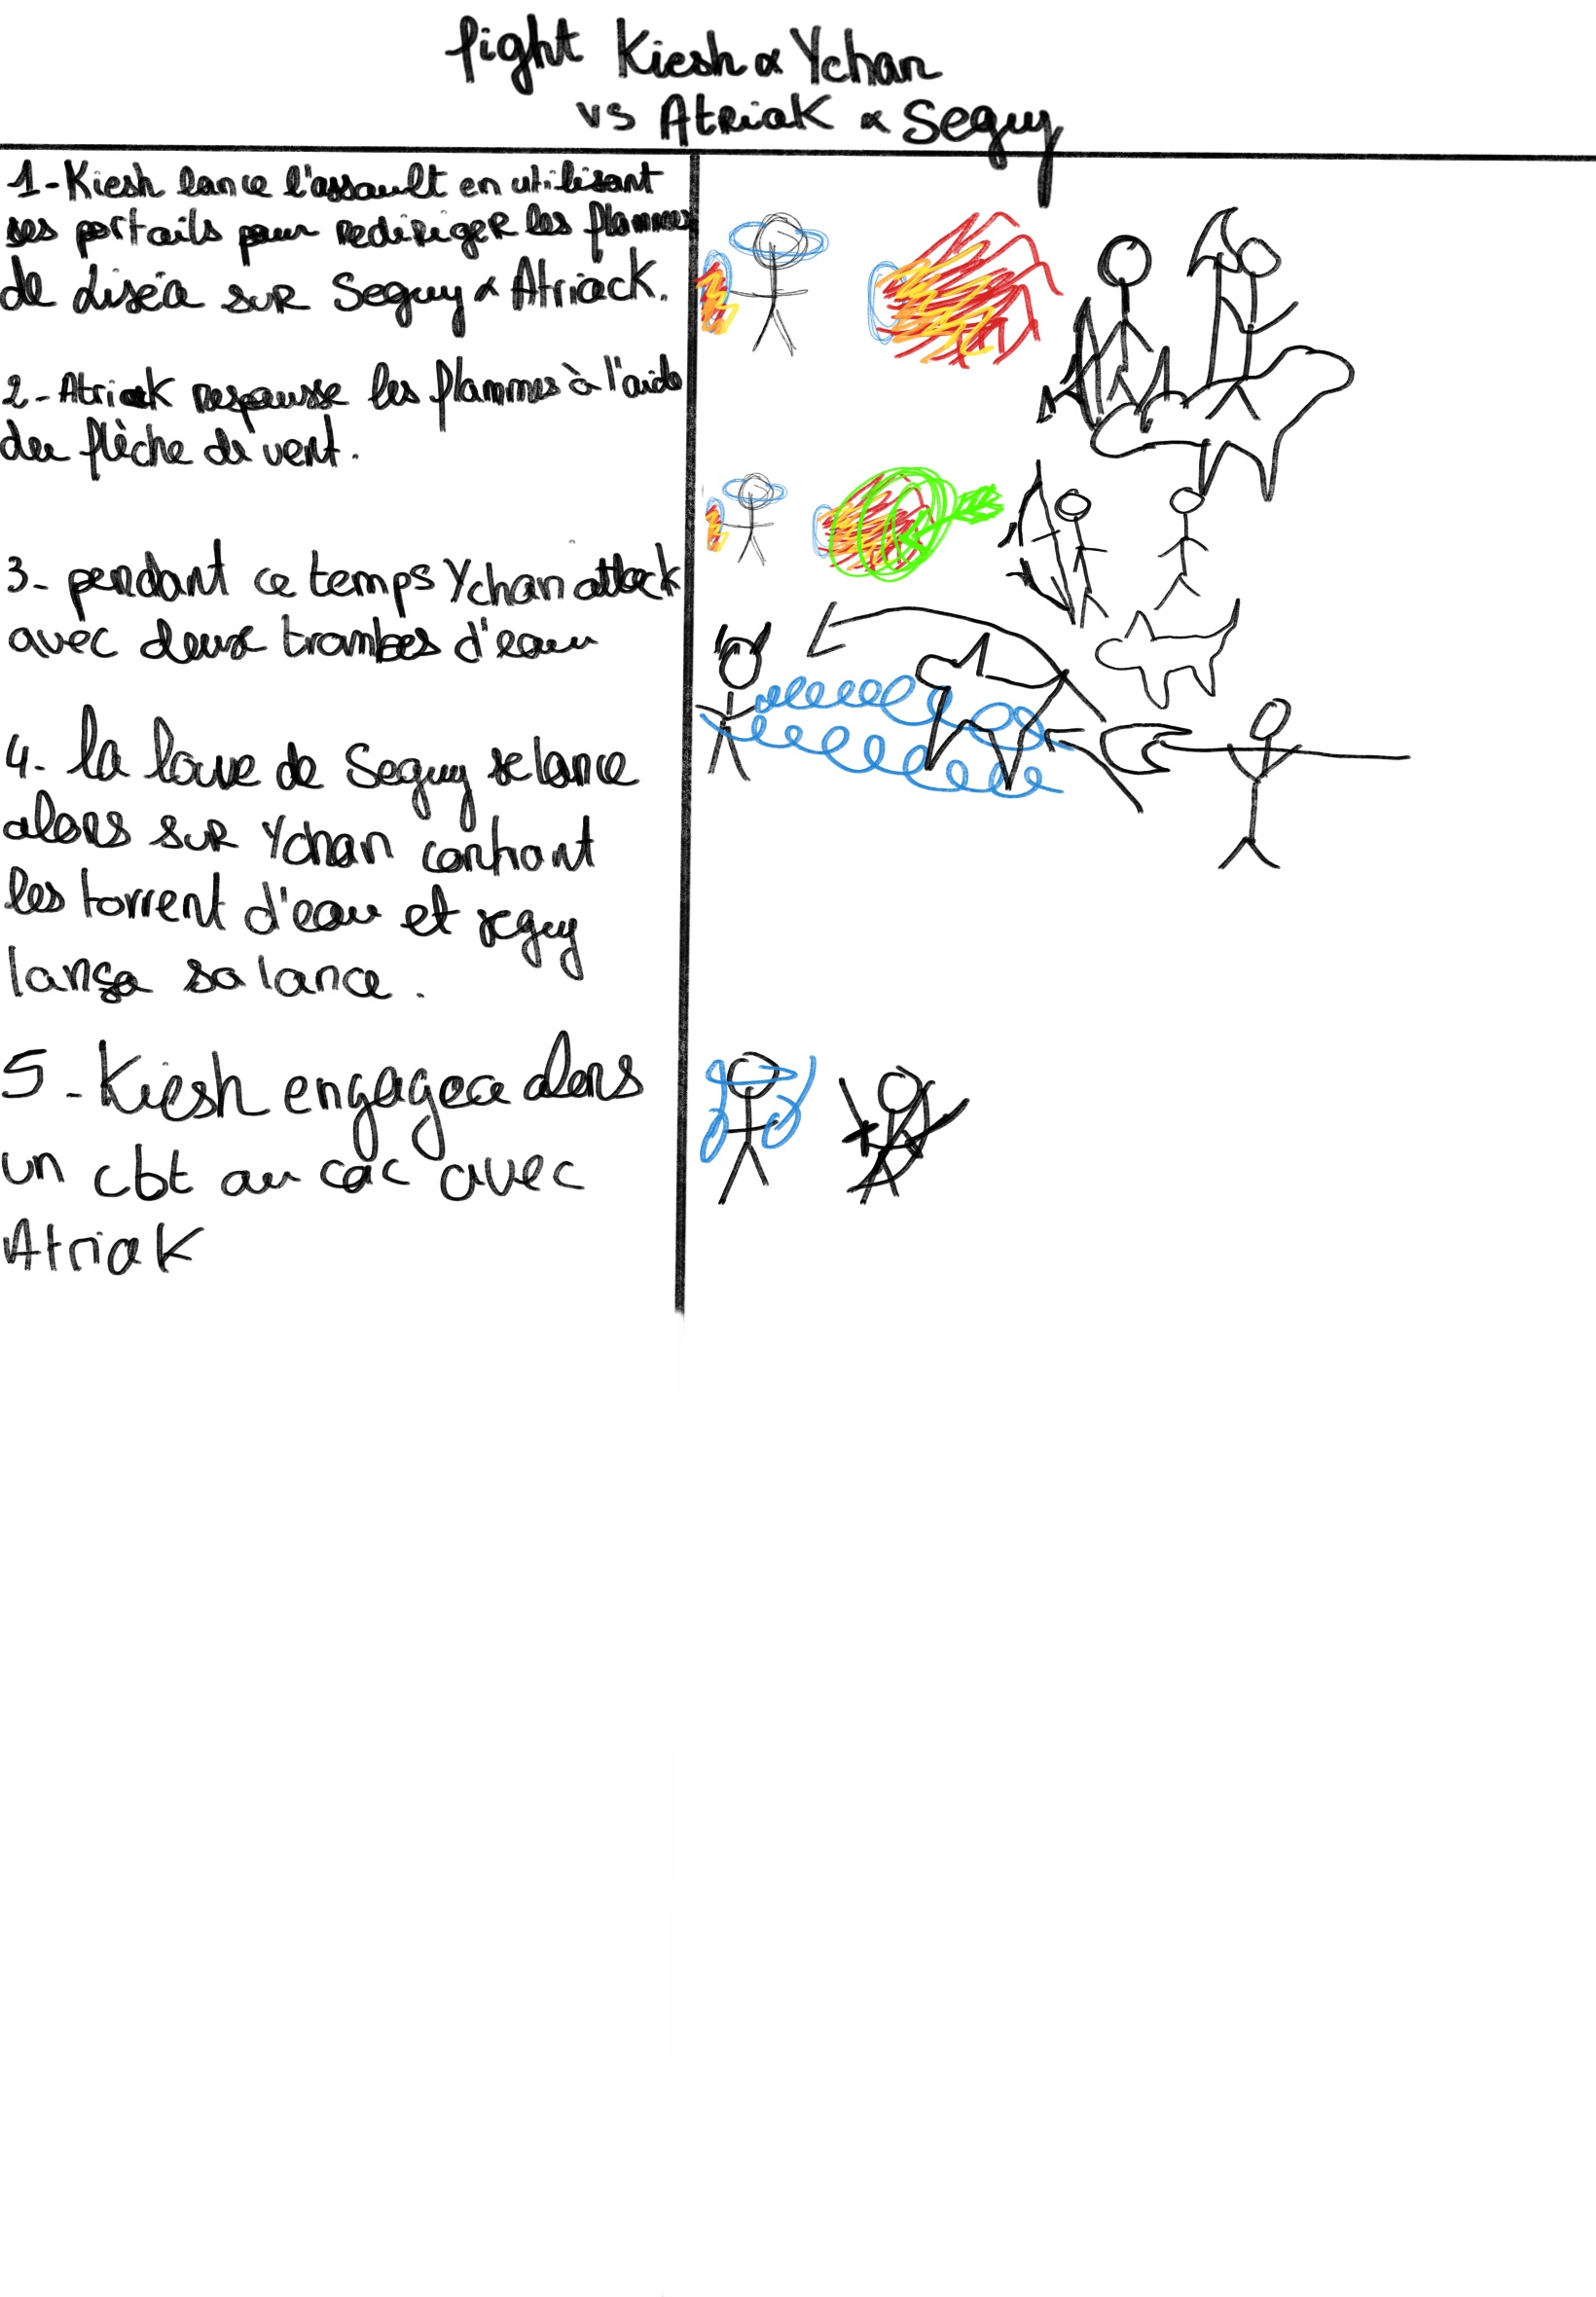 fight Kiesh & Ychan
vs Atriak & Seguy
1-Kiesh lance l'assault en utilisant
ses portails pour rediriger les flammes
de Liséa sur Seguy & Atriack.
2-Atriak repousse les flammes à l'aide
du flèche de vent.
3- pendant ce temps Ychan attack
avec deux trombes d'eau
4. la louve de Seguy se lance
alors sur Ychan
les torrent d'eau et seguy
lança sa lance.
5-Kiesh engagea alors
un cbt au cac avec
Atriak